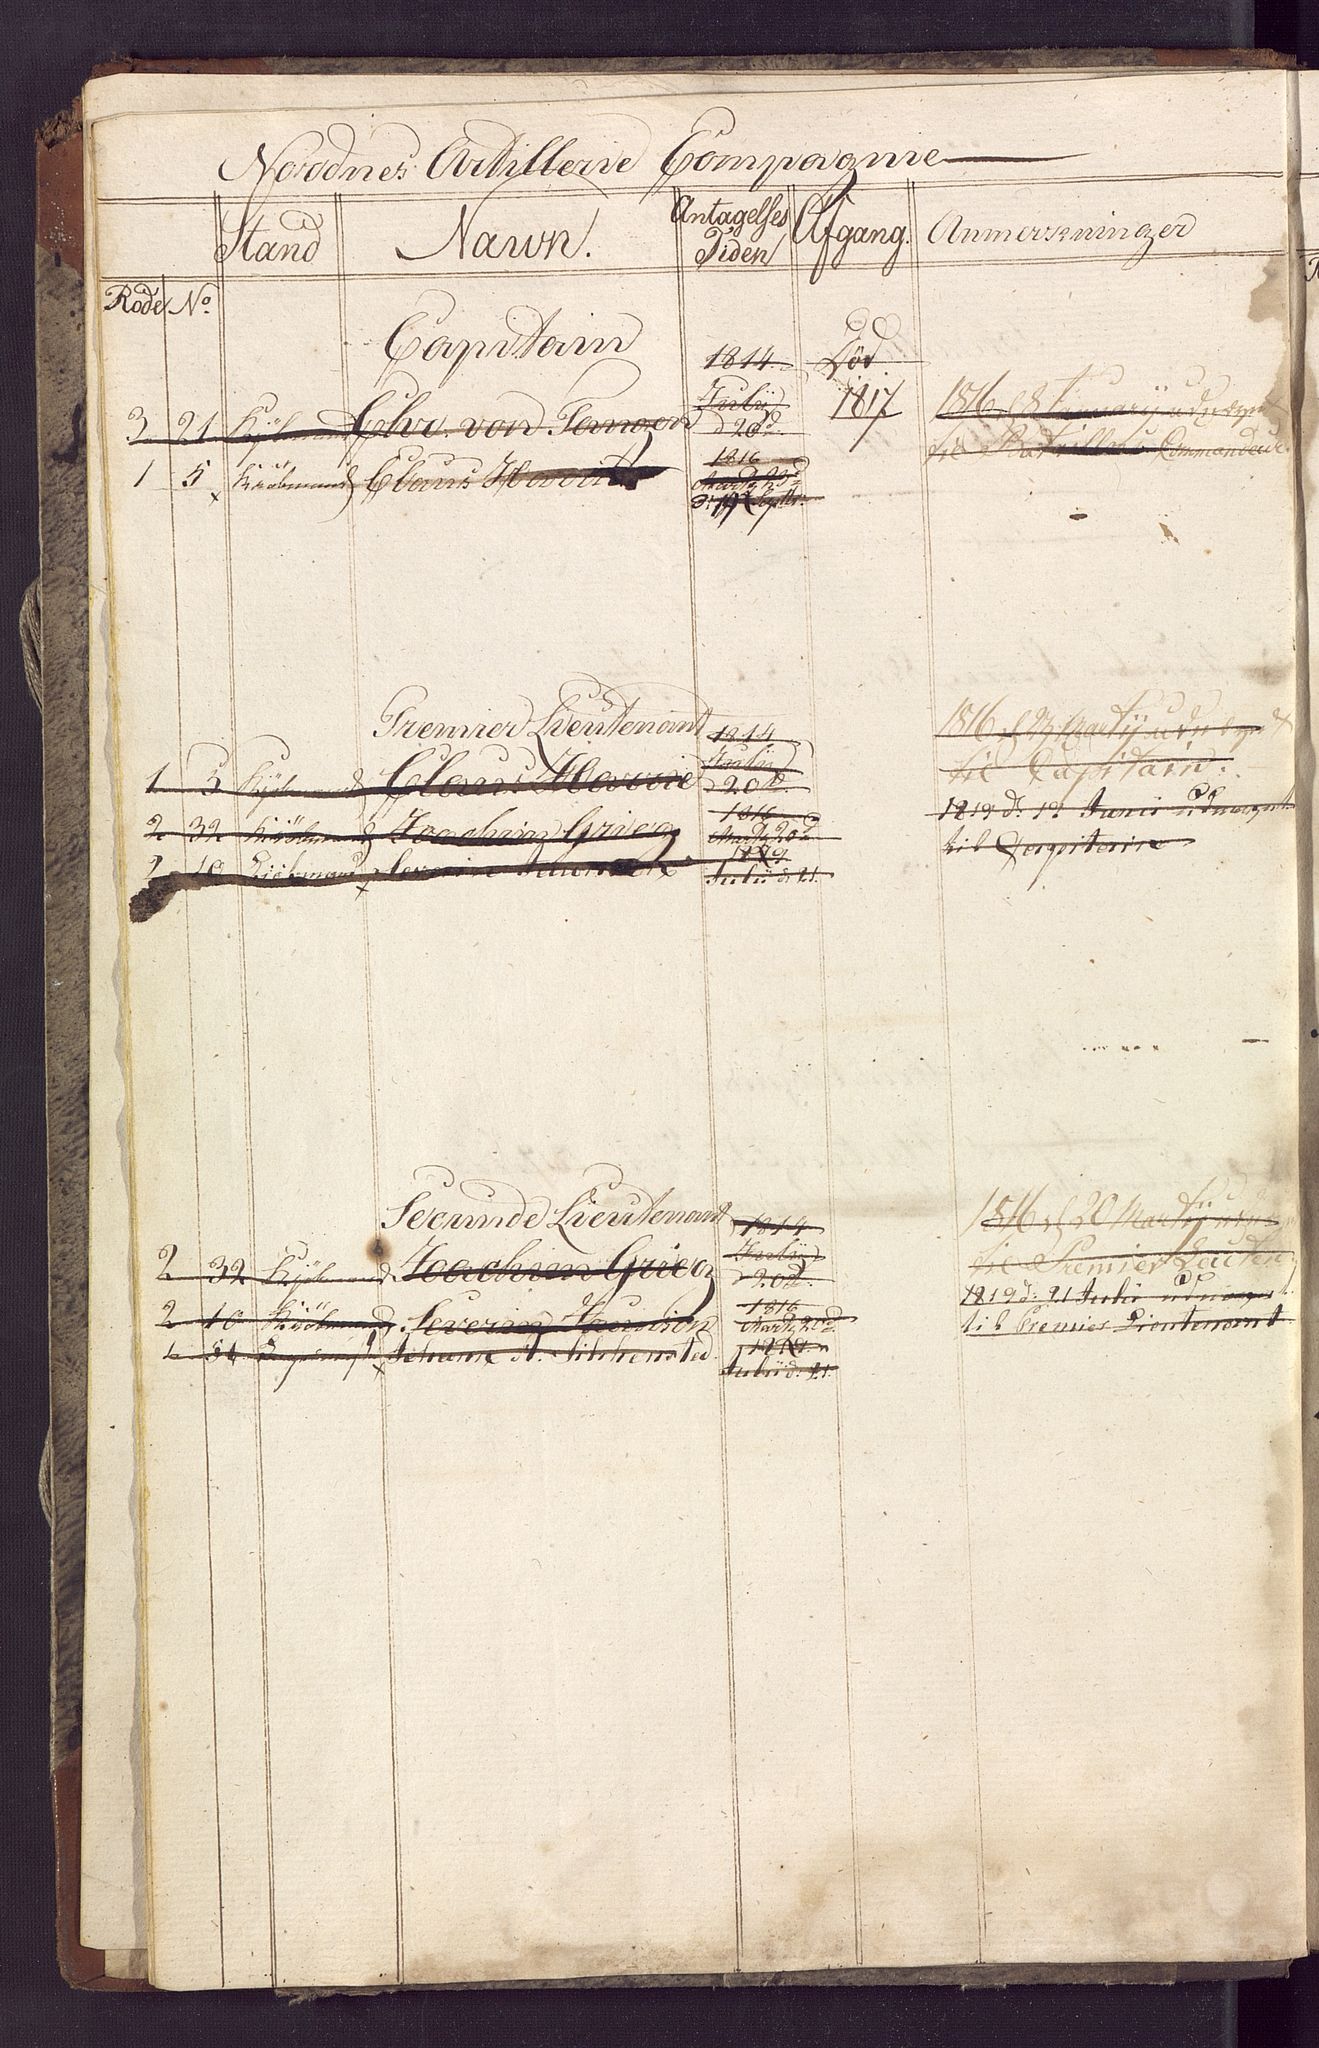 Norddnes Artillerie Compagnie
Rode No. Stand Nawn. Antagelses Tiden Afgang. Anmerkninger
Capitain
3 21 Kjöbmand Chr. von Tangen 1814 Julij 20d Död 1817 1816 d 8 udnevnt
til Batallions Commandeur
1 5 Kiöbmand Claus 1816 Martz 23d
Premier Lieutenant
1 5 Kjöbmand Claus 1814 Julij 20d 1816 d 23 Martij udnevnt
til Capitain
2 32 Kiöbmand Joachim Grieg 1816 Martz 20d 1819 d: 19 Junii udnevnt
til Capitain
2 10 Kiöbmand Severin 1819 Julii d: 21.
Secunde Lieutenant
2 32 Kjöbmand Joachim Grieg 1814 Julij 20d 1816 d 20 Martij udnevnt
til Premier Leuten
2 10 Kiöbmand Severin 1816 Martz 20d 1819 d: 21 Julii udnevnt
til Premier Lieutenant
1 Johann 1819 Julii d: 21.